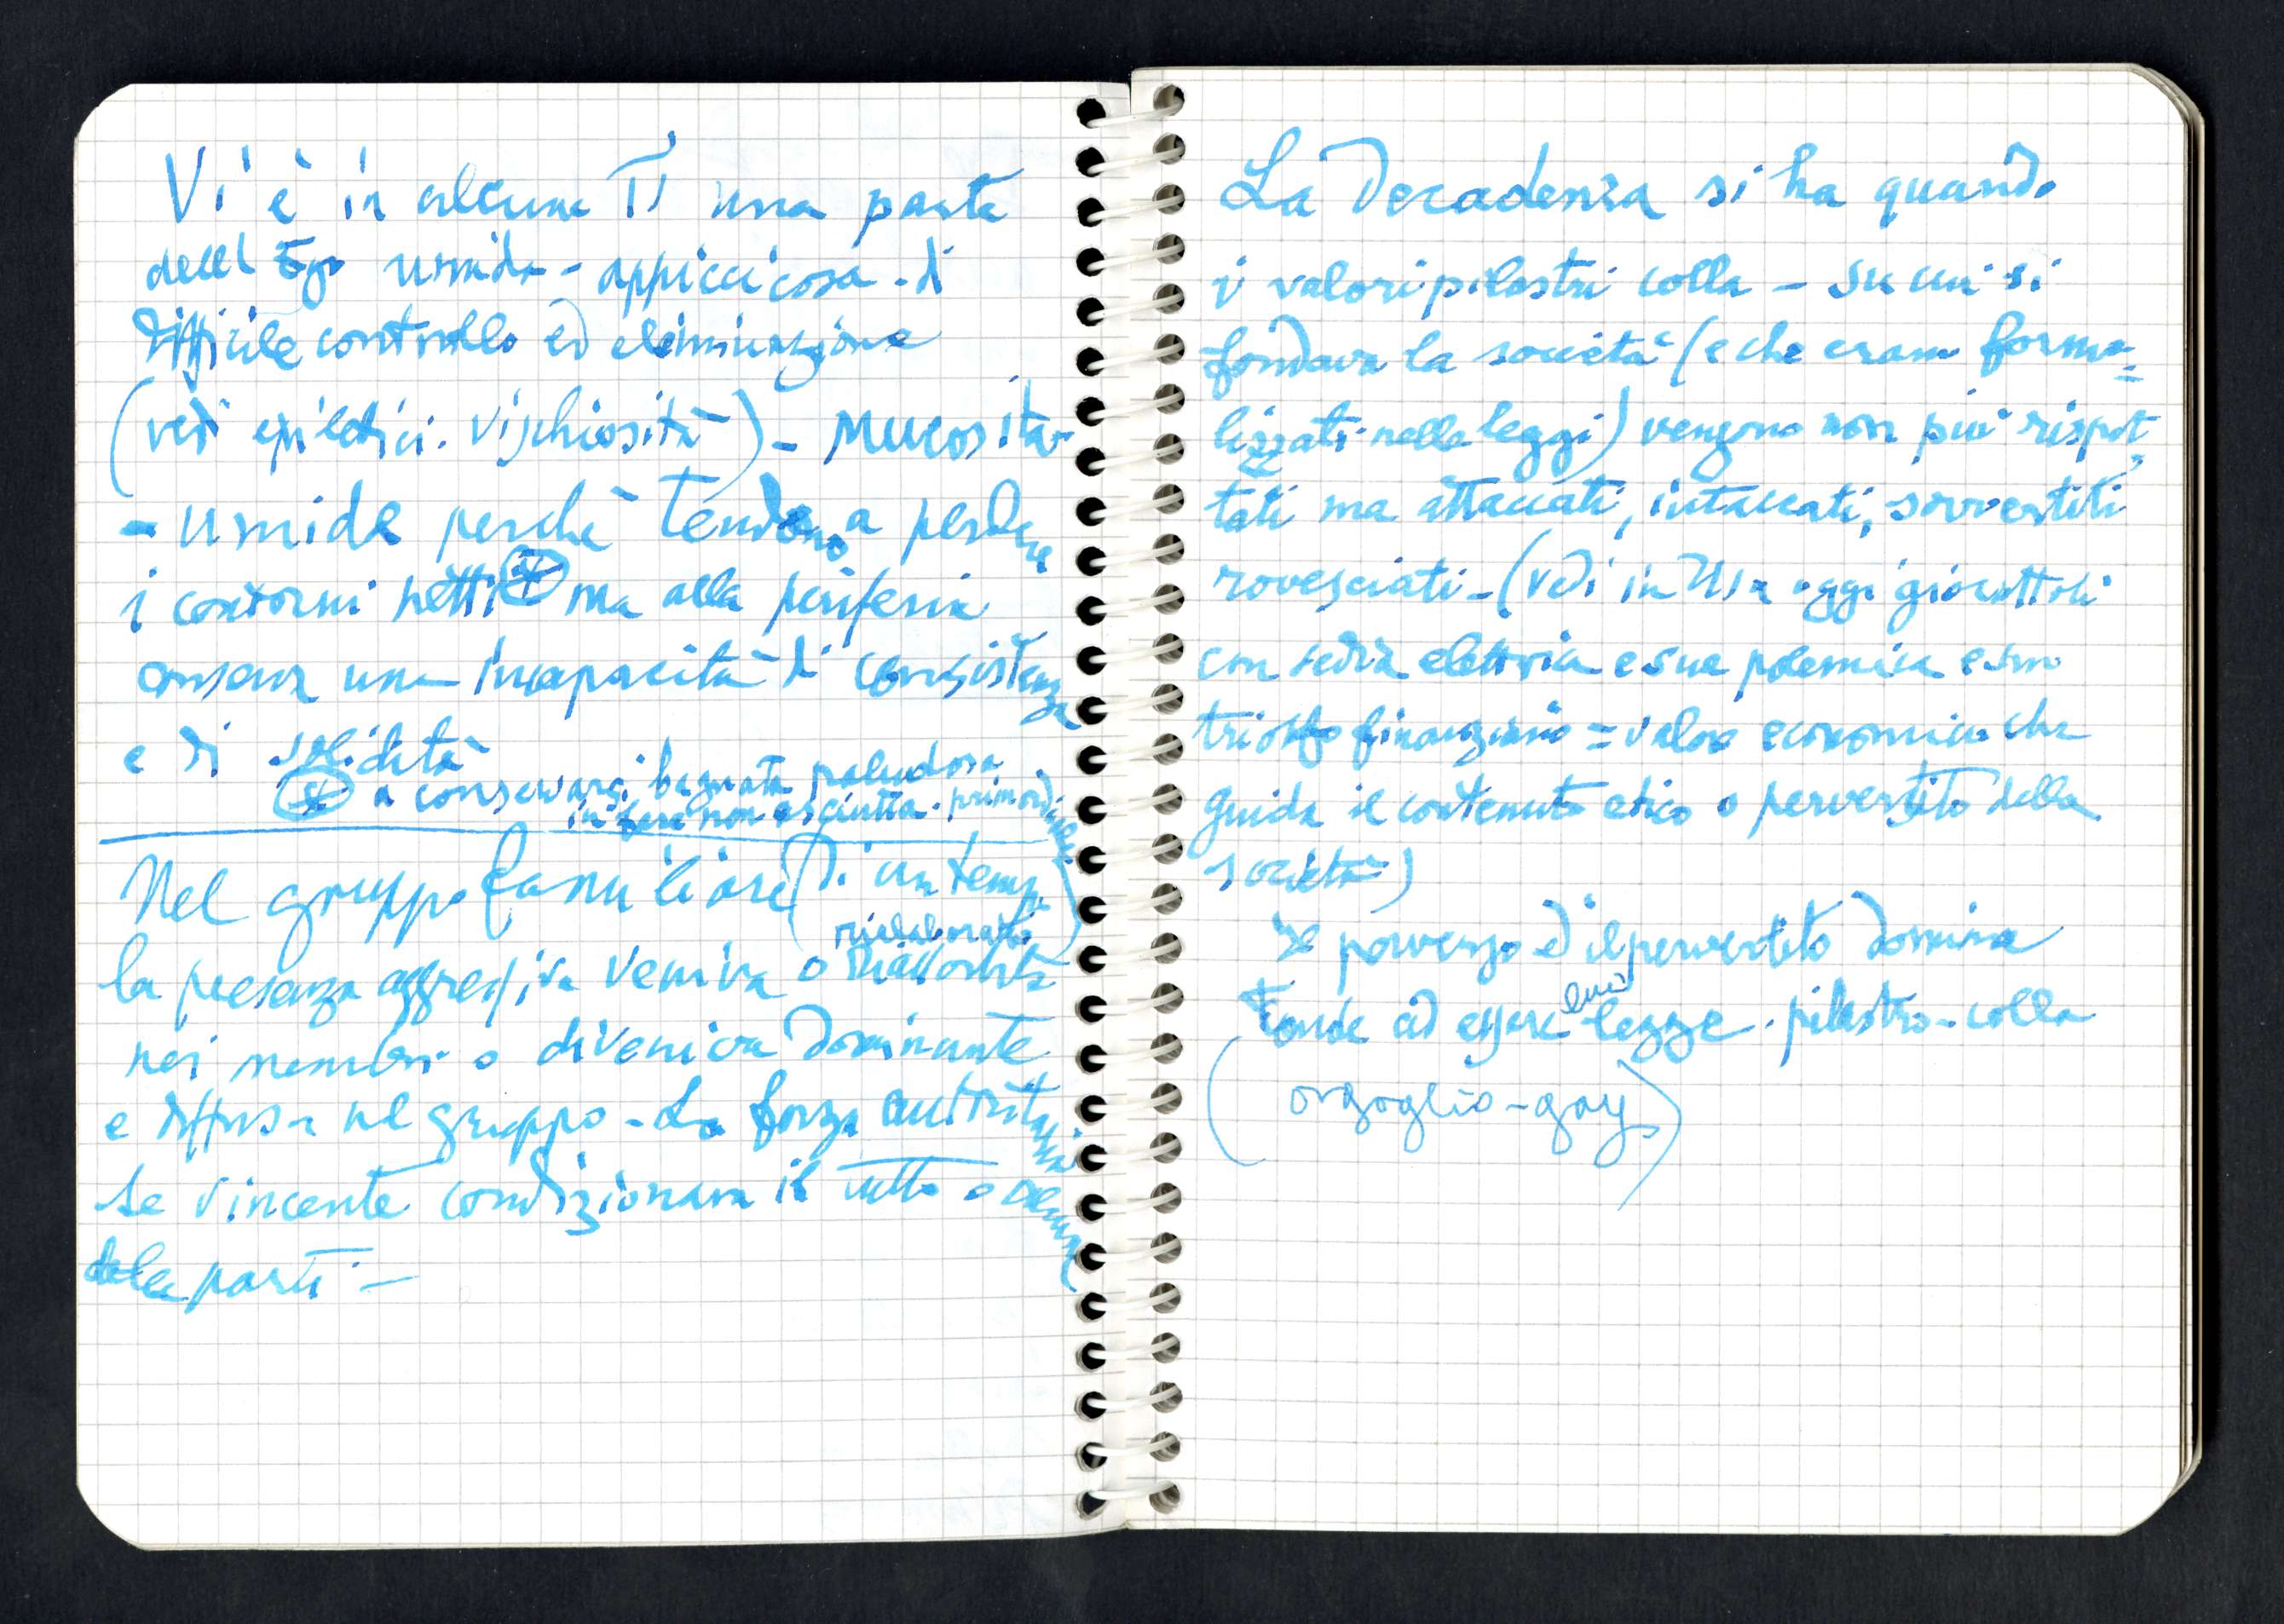 Vi è in alcune TI una parte
dell Ego umida - appiccicosa - di
difficile controllo ed eliminazione
(vedi epilettici. vischiosità) - Mucosità
- umide perché tendono a perdere
i contorni netti ⊛ ma alla periferia
conserva una incapacità di consistenza
e di solidità
⊛ a conservarsi bagnata paludosa
in fase non asciutta - primordiale
Nel gruppo familiare (di un tempo)
rielaborata
la presenza aggressiva veniva o
nei membri o diveniva dominante
e diffusa nel gruppo - La forza
se vincente condizionava il tutto o
dalle parti -
La Decadenza si ha quando
i valori pilastri colla - su cui si
fondava la società (e che erano forma=
lizzati nelle leggi) vengono non più rispet=
tati ma attaccati, intaccati, sovvertiti
rovesciati - (vedi in Usa oggi giocattoli
con sedia elettrica e sue polemica e suo
trionfo finanziario = valore economico che
guida il contenuto etico o pervertito della
società)
Il perverso ed il pervertito domina
tende ad essere lui legge - pilastro - colla
(orgoglio - gay)